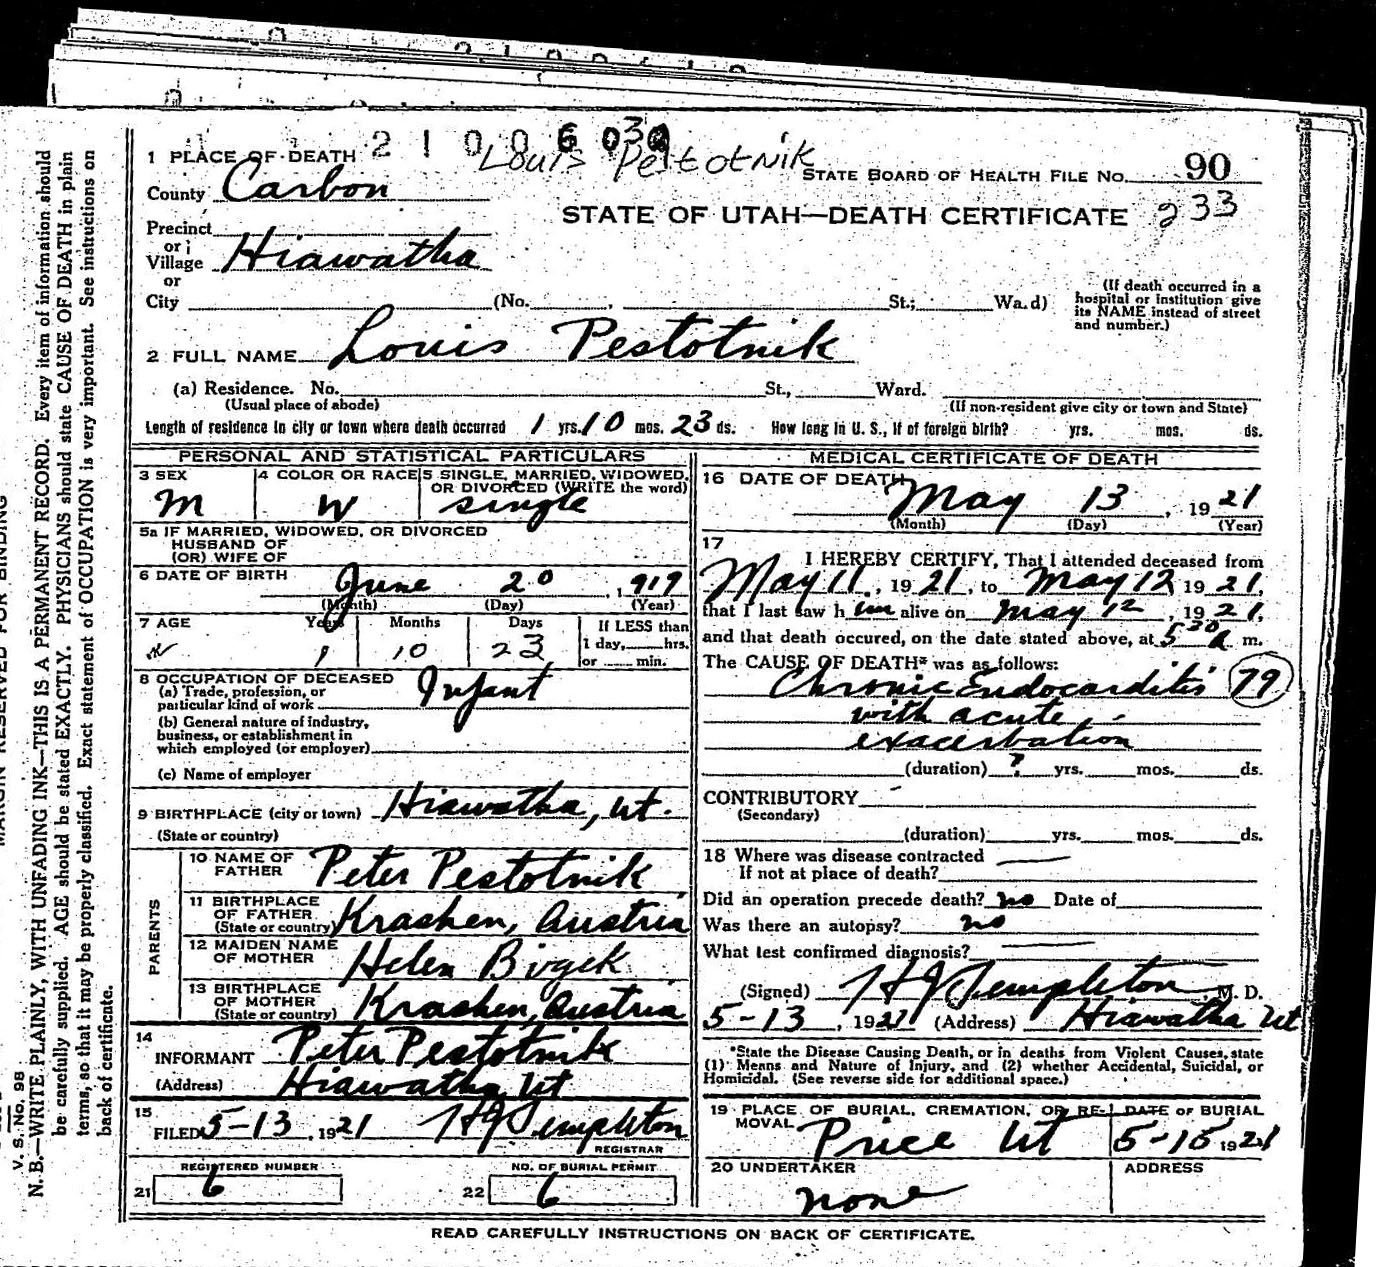 2 1 0 0 6 0 3
Louis Pestotnik
1 PLACE OF DEATH
County Carbon
STATE BOARD OF HEALTH FILE No. 90
STATE OF UTAH—DEATH CERTIFICATE 233
Precinct
or
Village Hiawatha
or
City (No. , St.; Wa.d)
(If death occurred in a
hospital or institution give
its NAME instead of street
and number.)
2 FULL NAME Louis Pestotnik
(a) Residence. No. St., Ward.
(Usual place of abode) (If non-resident give city or town and State)
Length of residence in city or town where death occurred 1 yrs. 10 mos. 23 ds. How long in U. S., if of foreign birth? yrs. mos. ds.
PERSONAL AND STATISTICAL PARTICULARS
3 SEX
M
4 COLOR OR RACE
W
5 SINGLE, MARRIED, WIDOWED,
OR DIVORCED (WRITE the word)
single
5a IF MARRIED, WIDOWED, OR DIVORCED
HUSBAND OF
(OR) WIFE OF
6 DATE OF BIRTH June 20, 1919
(Month) (Day) (Year)
7 AGE Years Months Days If LESS than
1 10 23 1 day, hrs.
or min.
8 OCCUPATION OF DECEASED
(a) Trade, profession, or
particular kind of work Infant
(b) General nature of industry,
business, or establishment in
which employed (or employer)
(c) Name of employer
9 BIRTHPLACE (city or town) Hiawatha, Ut.
(State or country)
PARENTS
10 NAME OF
FATHER Peter Pestotnik
11 BIRTHPLACE
OF FATHER
(State or country) Krashen, Austria
12 MAIDEN NAME
OF MOTHER Helen
13 BIRTHPLACE
OF MOTHER
(State or country) Krashen, Austria
14
INFORMANT Peter Pestotnik
(Address) Hiawatha, Ut
15
FILED 5-13, 1921 H J Templeton
REGISTRAR
REGISTERED NUMBER
21 6
NO. OF BURIAL PERMIT
22 6
MEDICAL CERTIFICATE OF DEATH
16 DATE OF DEATH
May 13, 19 21
(Month) (Day) (Year)
17
I HEREBY CERTIFY, That I attended deceased from
May 11, 19 21, to May 12 19 21,
that I last saw h im alive on May 12, 19 21,
and that death occured, on the date stated above, at 5 30 a m.
The CAUSE OF DEATH* was as follows:
Chronic Endocarditis 79
with acute
exacerbation
(duration) ? yrs. mos. ds.
CONTRIBUTORY
(Secondary)
(duration) yrs. mos. ds.
18 Where was disease contracted
If not at place of death?
Did an operation precede death? no Date of
Was there an autopsy? no
What test confirmed diagnosis?
(Signed) H J Templeton M. D.
5-13, 1921 (Address) Hiawatha Ut
*State the Disease Causing Death, or in deaths from Violent Causes, state
(1) Means and Nature of Injury, and (2) whether Accidental, Suicidal, or
Homicidal. (See reverse side for additional space.)
19 PLACE OF BURIAL, CREMATION, OR RE-
MOVAL Price Ut
DATE OF BURIAL
5-15 1921
20 UNDERTAKER
none
ADDRESS
READ CAREFULLY INSTRUCTIONS ON BACK OF CERTIFICATE.
MARGIN RESERVED FOR BINDING
V. S. No. 98
N. B.—WRITE PLAINLY, WITH UNFADING INK—THIS IS A PERMANENT RECORD. Every item of information should
be carefully supplied. AGE should be stated EXACTLY. PHYSICIANS should state CAUSE OF DEATH in plain
terms, so that it may be properly classified. Exact statement of OCCUPATION is very important. See instructions on
back of certificate.